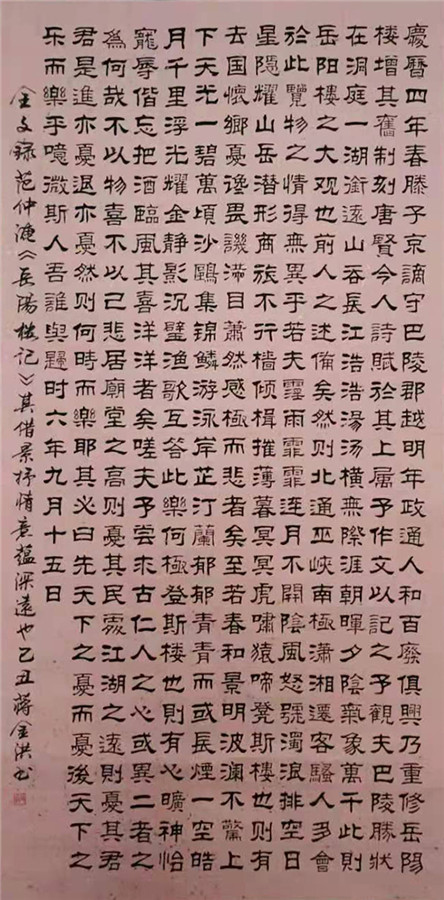 慶曆四年春滕子京謫守巴陵郡越明年政通人和百廢俱興乃重修岳陽
楼增其舊制刻唐賢今人詩賦於其上属予作文以記之予觀夫巴陵勝狀
在洞庭一湖銜遠山吞長江浩浩湯湯橫無際涯朝暉夕陰氣象萬千此則
岳阳楼之大观也前人之述備矣然则北通巫峡南極瀟湘遷客騷人多會
於此覽物之情得無異乎若夫霪雨霏霏连月不開陰風怒號濁浪排空日
星隱耀山岳潜形商旅不行檣倾楫摧薄暮冥冥虎嘯猿啼登斯楼也则有
去国懷鄉憂谗畏譏满目蕭然感極而悲者矣至若春和景明波瀾不驚上
下天光一碧萬頃沙鷗集锦鳞游泳岸芷汀蘭郁郁青青而或長煙一空皓
月千里浮光耀金静影沉璧渔歌互答此樂何極登斯楼也則有心曠神怡
寵辱偕忘把酒臨風其喜洋洋者矣嗟夫予嘗求古仁人之心或異二者之
為何哉不以物喜不以己悲居廟堂之高則憂其民處江湖之遠則憂其君
君是進亦憂退亦憂然则何時而樂耶其必曰先天下之憂而憂後天下之
乐而樂乎噫微斯人吾誰與歸时六年九月十五日
全文録范仲淹《岳陽樓記》其借景抒情意蕴深遠也乙丑蒋金洪书